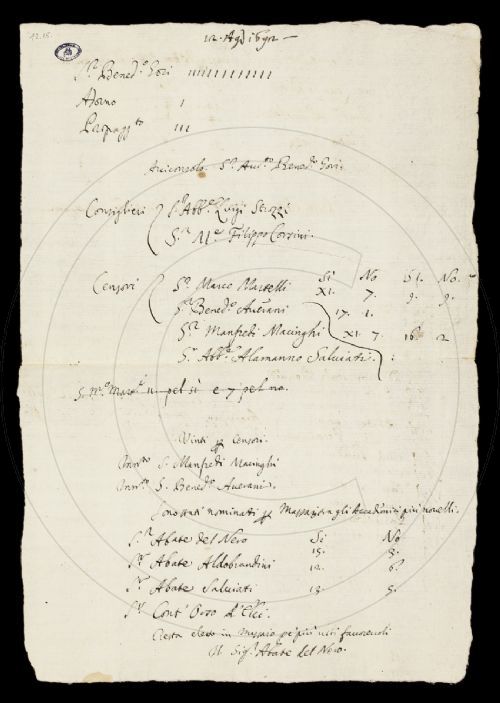 12. Ag.º 1692 —
S.r Bened.º Gori ıııııııııııı
Adorno ı
Perpag.tto ııı
Arciconsolo. S.r Avv.to Bened.º Gori.
Consiglieri S.r Abb.e Luigi Strozzi
S.r M.e Filippo Corsini.
Si No Si. No.
Censori S.r Marco Martelli XI. 7. 9. 9.
S.r Bened.º Averani 17. 1.
S.r Manfredi Macinghi XI. 7. 16. 2
S.r Abb.e Alamanno Salviati.
S. M.º Mart.i 11 pel sì e 7 pel no.
Vinti per Censori.
Inn.to S. Manfredi Macinghi
Inn.to S. Bened.º Averani.
Sono stati nominati per Massaio tra gli Accad.mici più novelli.
Si No
S.r Abate del Nero 15. 3.
S.r Abate Aldobrandini 12. 6.
S.r Abate Salviati 13. 5.
S.r Cont' Orso d'Elci.
Resta eletto in Massaio pe' più voti favorevoli
Il Sig.r Abate del Nero.